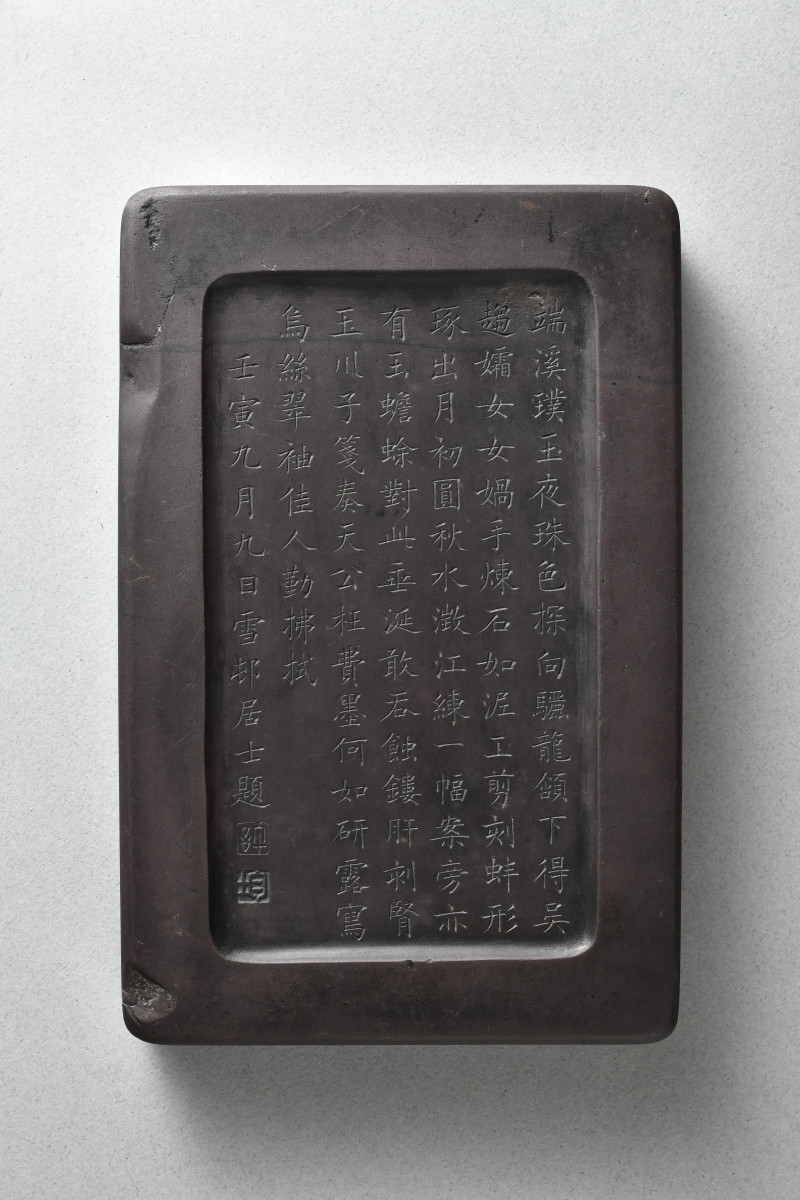 端溪璞玉夜珠色探向驪龍頷下得吳
趨孀女女媧手煉石如泥工剪刻蚌形
琢出月初圓秋水澂江練一幅案旁亦
有玉蟾蜍對此垂涎敢吞蝕鏤肝刺腎
玉川子箋奏天公枉費墨何如研露寫
烏絲翠袖佳人勤拂拭
壬寅九月九日雪邨居士題